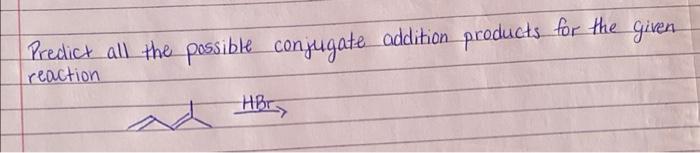 Predict all the possible conjugate addition products for the given
reaction
HBr